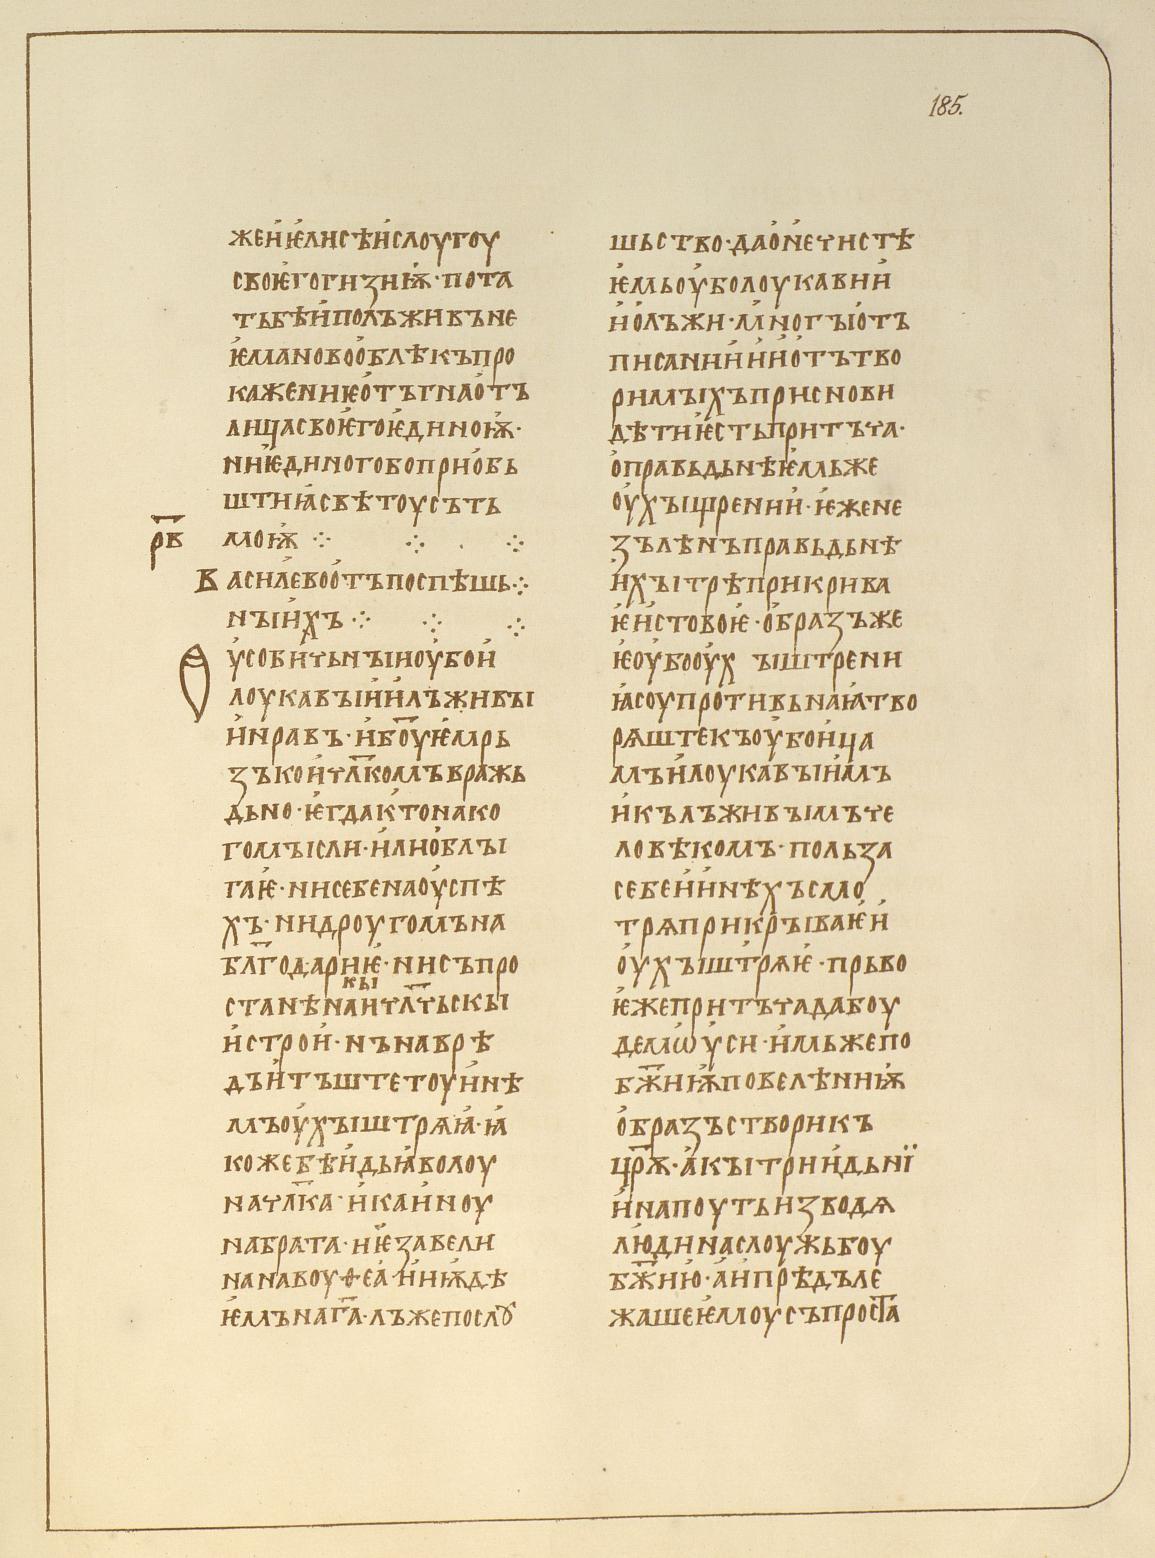 185.
женѥлисѣислоугоу
своѥгогиꙁиѭ·пота
тьбѣиполъживъне
ѥмановооблѣкъпро
каженикотъгнаотъ
лищасвоѥгоѥдиноѭ·
ниѥдиногобоприобь
штиꙗсвѣтоусъть
рв моѭ ⁘ ⁘ · ⁘
Василевоотъпоспѣшь⁘
ныихъ ⁘ ⁘ ⁘
Оусобичьныиоубои
лоукавыиилъживыи
инравъ·ибоуѥмрь
ꙁъкоичлкомъвражь
дьно·ѥгдактонако
гомысли·илиоблы
гаѥ·нисебенаоуспѣ
хъ·нидроугомъна
благодариѥ·нисъпро
кы
станѣнаичлчьскы
истрои·нънаврѣ
дъитъштетоуинѣ
мъоухыштрѧꙗ·ꙗ
кожебѣидьꙗволоу
начлка·икаиноу
набрата·ниѥꙁавели
нанавоуѳеа·ииѭдѣ
ѥмънага·лъжепослꙋ
шьство·даонечистѣ
ѥмьоуболоукавии
иолъжи·многыотъ
писаниииинотътво
римыхъприсnови
дѣтиѥстьпритъча·
оправьдьнѣѥмьже
оухыщрении·ѥжене
ꙁълѣнъправьдьнѣ
ихытрѣприкрива
ѥистовоѥ·обраꙁъже
ѥоубооух ыштрени
ꙗсоупротивьнаꙗтво
рѧштекъоубоица
мъилоукавыимъ
икълъживымъче
ловѣкомъ·польꙁа
себеиинѣхъсмо
трѧприкрываѥи
оухыштрѧѥ·прьво
ѥжепритъчадабоу
демѡуси·имьжепо
бжиѭповелѣниѭ
обраꙁъстворикъ
црѧ·акытриидьнї
инапоутьиꙁводѧ
людинаслоужьбоу
бжию·аипрѣдъле
жашеѥмоусъпроста